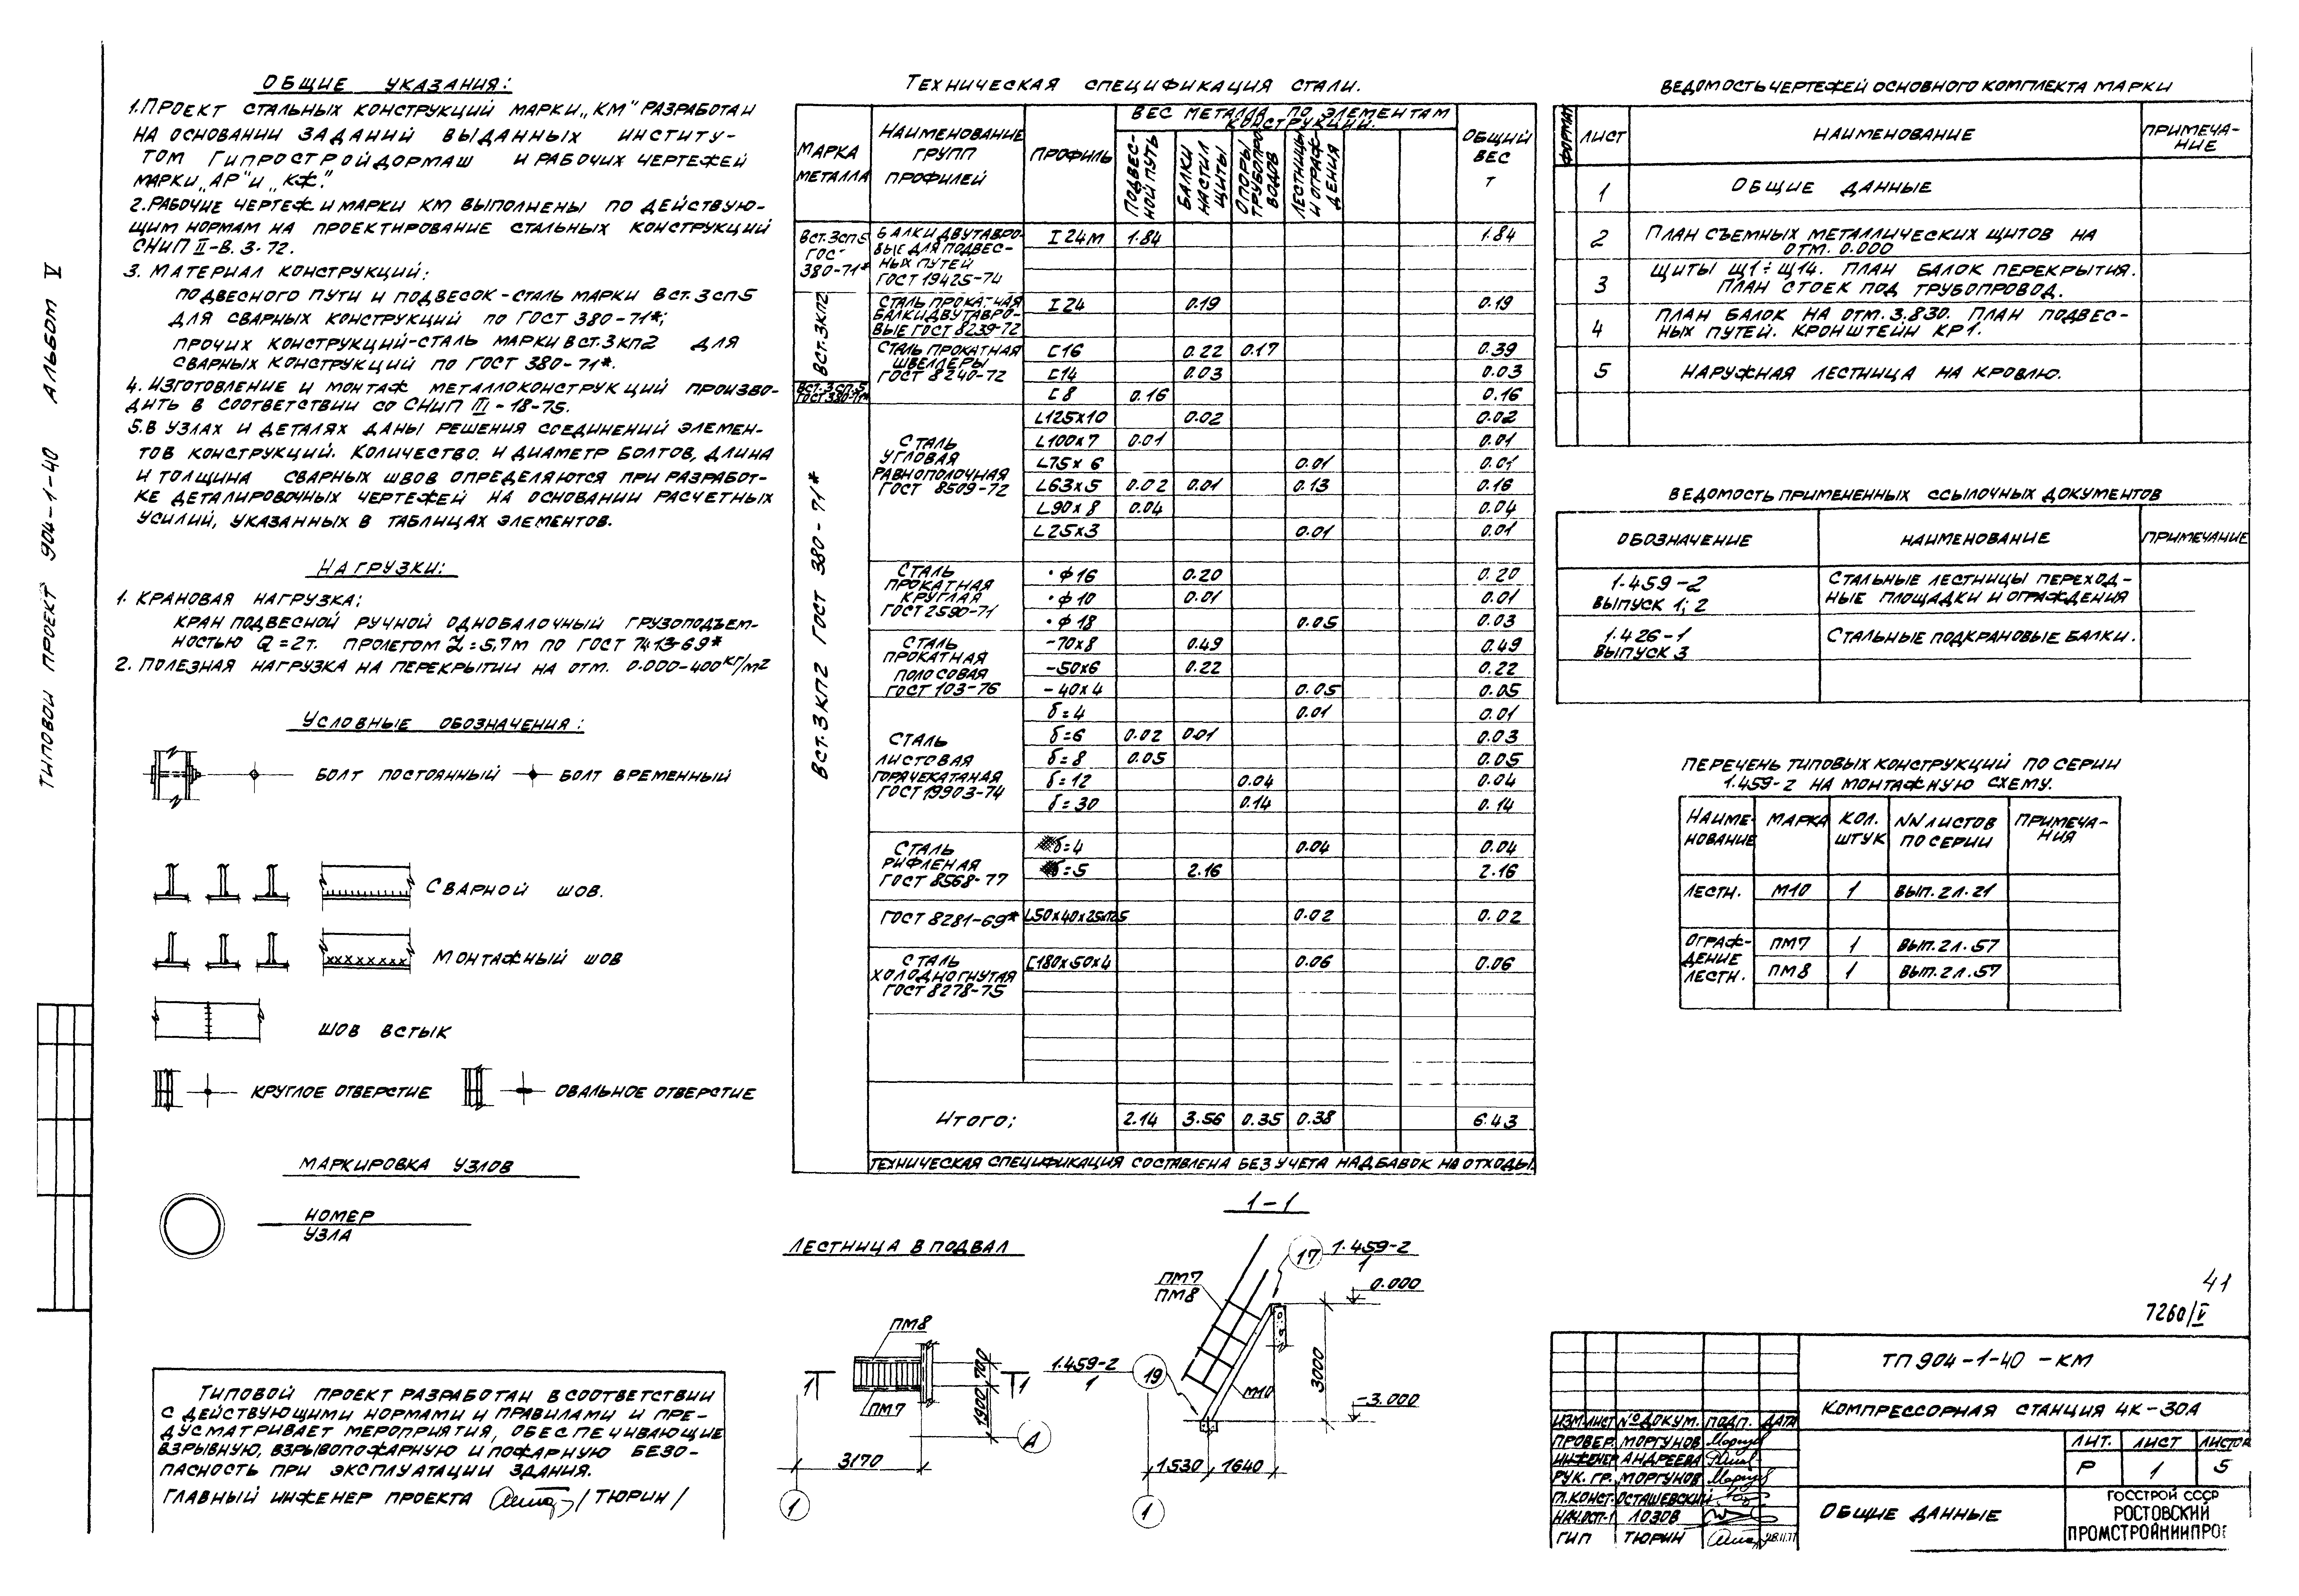 ТИПОВОЙ ПРОЕКТ 904-1-40 АЛЬБОМ V
ОБЩИЕ УКАЗАНИЯ:
1. ПРОЕКТ СТАЛЬНЫХ КОНСТРУКЦИЙ МАРКИ „КМ" РАЗРАБОТАН
НА ОСНОВАНИИ ЗАДАНИЙ ВЫДАННЫХ ИНСТИТУ-
ТОМ ГИПРОСТРОЙДОРМАШ И РАБОЧИХ ЧЕРТЕЖЕЙ
МАРКИ „АР" И „КЖ."
2. РАБОЧИЕ ЧЕРТЕЖИ МАРКИ КМ ВЫПОЛНЕНЫ ПО ДЕЙСТВУЮ-
ЩИМ НОРМАМ НА ПРОЕКТИРОВАНИЕ СТАЛЬНЫХ КОНСТРУКЦИЙ
СНиП II-В. 3-72.
3. МАТЕРИАЛ КОНСТРУКЦИЙ:
ПОДВЕСНОГО ПУТИ И ПОДВЕСОК-СТАЛЬ МАРКИ ВСт.3сп5
ДЛЯ СВАРНЫХ КОНСТРУКЦИЙ ПО ГОСТ 380-71*;
ПРОЧИХ КОНСТРУКЦИЙ-СТАЛЬ МАРКИ ВСт.3кп2 ДЛЯ
СВАРНЫХ КОНСТРУКЦИЙ ПО ГОСТ 380-71*.
4. ИЗГОТОВЛЕНИЕ И МОНТАЖ МЕТАЛЛОКОНСТРУКЦИЙ ПРОИЗВО-
ДИТЬ В СООТВЕТСТВИИ СО СНиП III-18-75.
5. В УЗЛАХ И ДЕТАЛЯХ ДАНЫ РЕШЕНИЯ СОЕДИНЕНИЙ ЭЛЕМЕН-
ТОВ КОНСТРУКЦИЙ. КОЛИЧЕСТВО И ДИАМЕТР БОЛТОВ, ДЛИНА
И ТОЛЩИНА СВАРНЫХ ШВОВ ОПРЕДЕЛЯЮТСЯ ПРИ РАЗРАБОТ-
КЕ ДЕТАЛИРОВОЧНЫХ ЧЕРТЕЖЕЙ НА ОСНОВАНИИ РАСЧЕТНЫХ
УСИЛИЙ, УКАЗАННЫХ В ТАБЛИЦАХ ЭЛЕМЕНТОВ.
НАГРУЗКИ:
1. КРАНОВАЯ НАГРУЗКА:
КРАН ПОДВЕСНОЙ РУЧНОЙ ОДНОБАЛОЧНЫЙ ГРУЗОПОДЪЕМ-
НОСТЬЮ Q=2т. ПРОЛЕТОМ L=5,7м ПО ГОСТ 7413-69*
2. ПОЛЕЗНАЯ НАГРУЗКА НА ПЕРЕКРЫТИИ НА ОТМ. 0.000-400кг/м2
УСЛОВНЫЕ ОБОЗНАЧЕНИЯ:
БОЛТ ПОСТОЯННЫЙ БОЛТ ВРЕМЕННЫЙ
СВАРНОЙ ШОВ.
МОНТАЖНЫЙ ШОВ
ШОВ ВСТЫК
КРУГЛОЕ ОТВЕРСТИЕ ОВАЛЬНОЕ ОТВЕРСТИЕ
МАРКИРОВКА УЗЛОВ
НОМЕР
УЗЛА
ТИПОВОЙ ПРОЕКТ РАЗРАБОТАН В СООТВЕТСТВИИ
С ДЕЙСТВУЮЩИМИ НОРМАМИ И ПРАВИЛАМИ И ПРЕ-
ДУСМАТРИВАЕТ МЕРОПРИЯТИЯ, ОБЕСПЕЧИВАЮЩИЕ
ВЗРЫВНУЮ, ВЗРЫВОПОЖАРНУЮ И ПОЖАРНУЮ БЕЗО-
ПАСНОСТЬ ПРИ ЭКСПЛУАТАЦИИ ЗДАНИЯ.
ГЛАВНЫЙ ИНЖЕНЕР ПРОЕКТА /ТЮРИН/
ТЕХНИЧЕСКАЯ СПЕЦИФИКАЦИЯ СТАЛИ.
МАРКА МЕТАЛЛА
НАИМЕНОВАНИЕ ГРУПП ПРОФИЛЕЙ
ПРОФИЛЬ
ВЕС МЕТАЛЛА ПО ЭЛЕМЕНТАМ КОНСТРУКЦИИ.
ПОДВЕС-НОЙ ПУТЬ
БАЛКИ НАСТИЛ ЩИТЫ
ОПОРЫ ТРУБОПРО-ВОДОВ
ЛЕСТНИЦЫ И ОГРАЖ-ДЕНИЯ
ОБЩИЙ ВЕС Т
ВСт.3сп5 ГОСТ 380-71*
БАЛКИ ДВУТАВРО-
ВЫЕ ДЛЯ ПОДВЕС-
НЫХ ПУТЕЙ
ГОСТ 19425-74
I 24М 1.84 1.84
ВСт.3кп2
СТАЛЬ ПРОКАТНАЯ
БАЛКИ ДВУТАВРО-
ВЫЕ ГОСТ 8239-72
I 24 0.19 0.19
СТАЛЬ ПРОКАТНАЯ
ШВЕЛЛЕРЫ
ГОСТ 8240-72
С16 0.22 0.17 0.39
С14 0.03 0.03
ВСт.3сп.5 ГОСТ 380-71*
С8 0.16 0.16
ВСт.3кп2 ГОСТ 380-71*
СТАЛЬ
УГЛОВАЯ
РАВНОПОЛОЧНАЯ
ГОСТ 8509-72
L125x10 0.02 0.02
L100x7 0.01 0.01
L75x6 0.01 0.01
L63x5 0.02 0.01 0.13 0.16
L90x8 0.04 0.04
L25x3 0.01 0.01
СТАЛЬ
ПРОКАТНАЯ
КРУГЛАЯ
ГОСТ 2590-71
•ф16 0.20 0.20
•ф10 0.01 0.01
•ф18 0.05 0.03
СТАЛЬ
ПРОКАТНАЯ
ПОЛОСОВАЯ
ГОСТ 103-76
-70x8 0.49 0.49
-50x6 0.22 0.22
-40x4 0.05 0.05
СТАЛЬ
ЛИСТОВАЯ
ГОРЯЧЕКАТАНАЯ
ГОСТ 19903-74
δ=4 0.01 0.01
δ=6 0.02 0.01 0.03
δ=8 0.05 0.05
δ=12 0.04 0.04
δ=30 0.14 0.14
СТАЛЬ
РИФЛЕНАЯ
ГОСТ 8568-77
δ=4 0.04 0.04
δ=5 2.16 2.16
ГОСТ 8281-69* 0.02 0.02
СТАЛЬ
ХОЛОДНОГНУТАЯ
ГОСТ 8278-75
С180x50x4 0.06 0.06
ИТОГО: 2.14 3.56 0.35 0.38 6.43
ТЕХНИЧЕСКАЯ СПЕЦИФИКАЦИЯ СОСТАВЛЕНА БЕЗ УЧЕТА НАДБАВОК НА ОТХОДЫ.
1-1
ЛЕСТНИЦА В ПОДВАЛ
ПМ8
ПМ7
1 1
700
1900
А
3170
1
ПМ7
ПМ8
17 1.459-2
1
0.000
3000
1.459-2
1
19
М10
-3.000
1530 1640
1
ВЕДОМОСТЬ ЧЕРТЕЖЕЙ ОСНОВНОГО КОМПЛЕКТА МАРКИ
ФОРМАТ ЛИСТ НАИМЕНОВАНИЕ ПРИМЕЧА-НИЕ
1 ОБЩИЕ ДАННЫЕ
2 ПЛАН СЪЕМНЫХ МЕТАЛЛИЧЕСКИХ ЩИТОВ НА
ОТМ. 0.000
3 ЩИТЫ Щ1÷Щ14. ПЛАН БАЛОК ПЕРЕКРЫТИЯ.
ПЛАН СТОЕК ПОД ТРУБОПРОВОД.
4 ПЛАН БАЛОК НА ОТМ. 3.830. ПЛАН ПОДВЕС-
НЫХ ПУТЕЙ. КРОНШТЕЙН КР1.
5 НАРУЖНАЯ ЛЕСТНИЦА НА КРОВЛЮ.
ВЕДОМОСТЬ ПРИМЕНЕННЫХ ССЫЛОЧНЫХ ДОКУМЕНТОВ
ОБОЗНАЧЕНИЕ НАИМЕНОВАНИЕ ПРИМЕЧАНИЕ
1.459-2 СТАЛЬНЫЕ ЛЕСТНИЦЫ ПЕРЕХОД-
ВЫПУСК 1; 2 НЫЕ ПЛОЩАДКИ И ОГРАЖДЕНИЯ
1.426-1 СТАЛЬНЫЕ ПОДКРАНОВЫЕ БАЛКИ.
ВЫПУСК 3
ПЕРЕЧЕНЬ ТИПОВЫХ КОНСТРУКЦИЙ ПО СЕРИИ
1.459-2 НА МОНТАЖНУЮ СХЕМУ.
НАИМЕ- МАРКА КОЛ. NN ЛИСТОВ ПРИМЕЧА-
НОВАНИЕ ШТУК ПО СЕРИИ НИЯ
ЛЕСТН. М10 1 ВЫП. 2 Л. 21
ОГРАЖ- ПМ7 1 ВЫП. 2 Л. 57
ДЕНИЕ
ЛЕСТН. ПМ8 1 ВЫП. 2 Л. 57
41
7260/V
ТП 904-1-40 -КМ
КОМПРЕССОРНАЯ СТАНЦИЯ 4К-30А
ИЗМ. ЛИСТ № ДОКУМ. ПОДП. ДАТА
ПРОВЕР. МОРГУНОВ
ИНЖЕНЕР АНДРЕЕВА
РУК. ГР. МОРГУНОВ
ГЛ.КОНСТ. ОСТАШЕВСКИЙ
НАЧ.ОСП-1 ЛОЗОВ
ГИП ТЮРИН
ЛИТ. ЛИСТ ЛИСТОВ
Р 1 5
ОБЩИЕ ДАННЫЕ
ГОССТРОЙ СССР
РОСТОВСКИЙ
ПРОМСТРОЙНИИПРОЕ